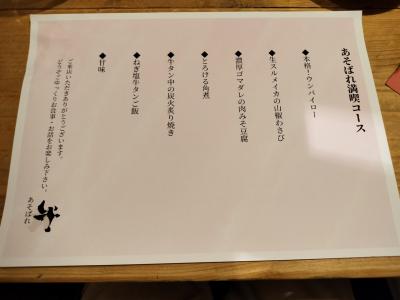 あそばれ満喫コース
◆本格！ウンパイロー
◆生スルメイカの山椒わさび
◆濃厚ゴマダレの肉みそ豆腐
◆とろける角煮
◆牛タン中の炭火炙り焼き
◆ねぎ塩牛タンご飯
◆甘味
ご来店いただきありがとうございます。
どうぞごゆっくりお食事・お話をお楽しみ下さい。
あそばれ